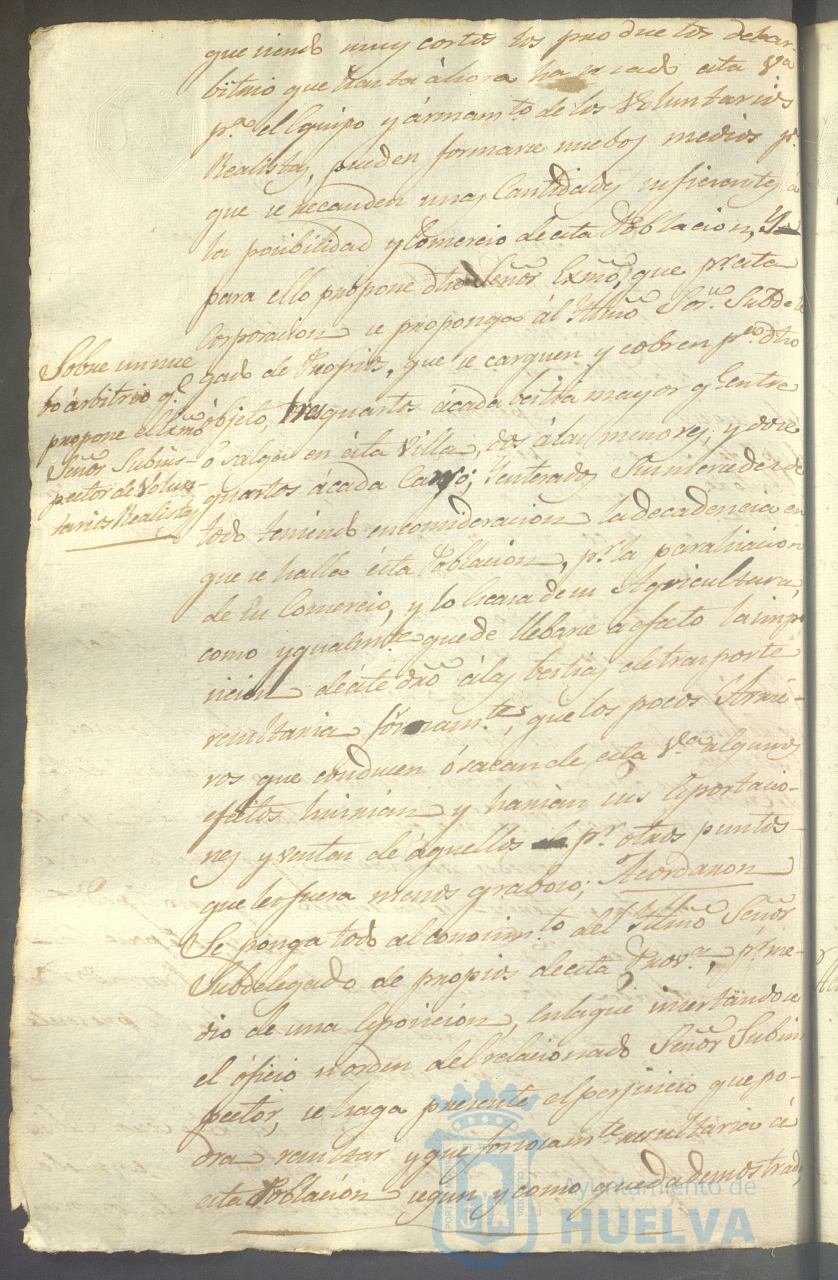 que siendo muy cortos los productos del ar-
bitrio que hasta áhora ha usado esta V.ª
p.ª el Equipo y ármam.to de los Voluntarios
Realistas, pueden formarse nuebos medios p.r
que se recauden unas Cantidades suficientes a
la posibilidad y Comercio de esta Poblacion, Y
para ello propone dho Señor Exmô, que p.r esta
Corporacion se proponga ál Iltmô Sor. Subdele
gado de Propios, que se carguen y cobren p.a dho
óbjeto, tres quartos ácada bestia mayor q.e entre
o salga en ésta Villa, dos á las menores, y doce
quartos ácada Carro; Yenterados Sus mercedes de
todo teniendo enconsideracion la decadencia en
que se halla ésta Poblacion, p.r la paralisacion
de su Comercio, y lo escasa de su Agricultura,
como ygualmte. que de llebarse a efecto la impo
sicion de éste dro álas bestias de trasporte
resultaria forsosam.te, que los pocos Arrie-
ros que conducen ó sacan de esta V.a algunos
efectos huirian y harian sus Esportacio-
nes y ventas de áquellos p.r otros puntos
que les fuera menos graboso; Acordaron
Se ponga todo al conosim.to del Iltmô Señor
Subdelegado de propios de esta Prov.a, p.r me-
dio de una Esposicion, enlaque insertandose
el óficio u orden del relacionado Señor Subins
pector, se haga presente el perjuicio que po-
dra resultar y que forsosam.te resultaria á
esta Poblacion segun y como queda demostrado,
Sobre un nue
bo árbitrio q.e
propone el Exmô
Señor Subins-
pector de Volun-
tarios Realistas
Ayuntamiento de
HUELVA